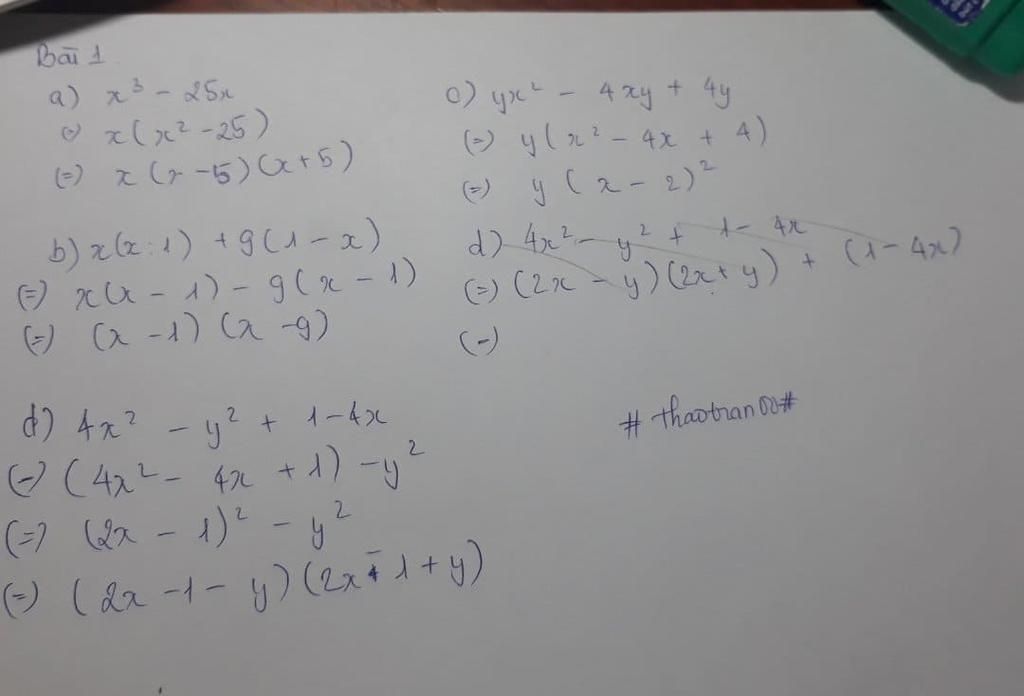 Bài 1
a) x³ - 25x
(=) x(x² - 25)
(=) x(x - 5)(x + 5)
b) x(x-1) + 9(1 - x)
(=) x(x - 1) - 9(x - 1)
(=) (x - 1)(x - 9)
c) yx² - 4xy + 4y
(=) y(x² - 4x + 4)
(=) y(x - 2)²
d) 4x² - y² + 1 - 4x
(=) (2x - y)(2x + y) + (1 - 4x)
(=)
d) 4x² - y² + 1 - 4x
(=) (4x² - 4x + 1) - y²
(=) (2x - 1)² - y²
(=) (2x - 1 - y)(2x - 1 + y)